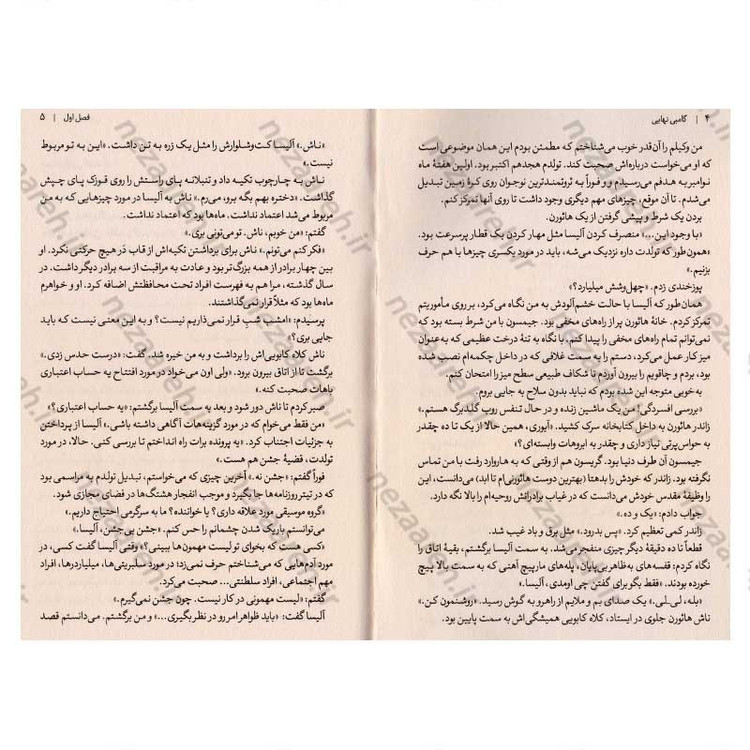 ۴ | گامبی نهایی
من وکیلم را آن‌قدر خوب می‌شناختم که مطمئن بودم این همان موضوعی است
که او می‌خواست درباره‌اش صحبت کند. تولدم هجدهم اکتبر بود. اولین هفتهٔ ماه
نوامبر به هدفم می‌رسیدم و فوراً به ثروتمندترین نوجوان روی کرهٔ زمین تبدیل
می‌شدم. تا آن موقع، چیزهای مهم دیگری وجود داشت تا روی آنها تمرکز کنم.
بردن یک شرط و پیشی گرفتن از یک هاثورن.
«با وجود این...» منصرف کردن آلیسا مثل مهار کردن یک قطار پرسرعت بود.
«همون‌طور که تولدت داره نزدیک می‌شه، باید در مورد یکسری چیزها با هم حرف
بزنیم.»
پوزخندی زدم. «چهل‌وشش میلیارد؟»
همان‌طور که آلیسا با حالت خشم‌آلودش به من نگاه می‌کرد، بر روی مأموریتم
تمرکز کردم. خانهٔ هاثورن پر از راه‌های مخفی بود. جیمسون با من شرط بسته بود که
نمی‌توانم تمام راه‌های مخفی را پیدا کنم. با نگاه به تنهٔ درخت عظیمی که به‌عنوان
میز کار عمل می‌کرد، دستم را به سمت غلافی که در داخل چکمه‌ام نصب شده
بود، بردم و چاقویم را بیرون آوردم تا شکاف طبیعی سطح میز را امتحان کنم.
به‌خوبی متوجه این شده بودم که نباید بدون سلاح به جایی بروم.
«بررسی افسردگی! من یک ماشین زنده و در حال تنفس روب گلدبرگ هستم.»
زاندر هاثورن به داخل کتابخانه سرک کشید. «آیوری، همین حالا از یک تا ده چقدر
به حواس‌پرتی نیاز داری و چقدر به ابروهات وابسته‌ای؟»
جیمسون آن طرف دنیا بود. گریسون هم از وقتی که به هاروارد رفت با من تماس
نگرفته بود. زاندر که خودش را بدهتا (بهترین دوست هاثورنی‌ام تا ابد) می‌دانست، این
را وظیفهٔ مقدس خودش می‌دانست که در غیاب برادرانش روحیه‌ام را بالا نگه دارد.
جواب دادم: «یک و ده.»
زاندر کمی تعظیم کرد. «پس بدرود.» مثل برق و باد غیب شد.
قطعاً تا ده دقیقهٔ دیگر چیزی منفجر می‌شد. به سمت آلیسا برگشتم، بقیهٔ اتاق را
نگاه کردم: قفسه‌های به‌ظاهر بی‌پایان، پله‌های مارپیچ آهنی که به سمت بالا پیچ
خورده بودند. «فقط بگو برای گفتن چی اومدی، آلیسا.»
«بله، لی‌لی.» یک صدای بم و ملایم از راهرو به گوش رسید. «روشنمون کن.»
ناش هاثورن جلوی در ایستاد، کلاه کابویی همیشگی‌اش به سمت پایین بود.
فصل اول | ۵
«ناش.» آلیسا کت‌وشلوارش را مثل یک زره به تن داشت. «این به تو مربوط
نیست.»
ناش به چارچوب تکیه داد و تنبلانه پای راستش را روی قوزک پای چپش
گذاشت. «دختره بهم بگه برو، می‌رم.» ناش به آلیسا در مورد چیزهایی که به من
مربوط می‌شد اعتماد نداشت. ماه‌ها بود که اعتماد نداشت.
گفتم: «من خوبم، ناش. تو می‌تونی بری.»
«فکر کنم می‌تونم.» ناش برای برداشتن تکیه‌اش از قاب در هیچ حرکتی نکرد. او
بین چهار برادر از همه بزرگ‌تر بود و عادت به مراقبت از سه برادر دیگر داشت. در
سال گذشته، مرا هم به فهرست افراد تحت محافظتش اضافه کرد. او و خواهرم
ماه‌ها بود که مثلاً قرار نمی‌گذاشتند.
پرسیدم: «امشب شبِ قرار نمی‌ذاریم نیست؟ و به این معنی نیست که باید
جایی بری؟»
ناش کلاه کابویی‌اش را برداشت و به من خیره شد. گفت: «درست حدس زدی.»
برگشت تا از اتاق بیرون برود. «ولی اون می‌خواد در مورد افتتاح یه حساب اعتباری
باهات صحبت کنه.»
صبر کردم تا ناش دور شود و بعد به سمت آلیسا برگشتم: «یه حساب اعتباری؟»
«من فقط می‌خوام که در مورد گزینه‌هات آگاهی داشته باشی.» آلیسا از پرداختن
به جزئیات اجتناب کرد. «یه پرونده برات راه انداختم تا بررسی کنی. حالا، در مورد
تولدت، قضیهٔ جشن هم هست.»
فوراً گفتم: «جشن نه.» آخرین چیزی که می‌خواستم، تبدیل تولدم به مراسمی بود
که در تیتر روزنامه‌ها جا بگیرد و موجب انفجار هشتگ‌ها در فضای مجازی شود.
«گروه موسیقی مورد علاقه داری؟ یا خواننده؟ ما به سرگرمی احتیاج داریم.»
می‌توانستم باریک شدن چشمانم را حس کنم. «جشن بی‌جشن، آلیسا.»
«کسی هست که بخوای تو لیست مهمون‌ها ببینی؟» وقتی آلیسا گفت کسی، در
مورد آدم‌هایی که می‌شناختم حرف نمی‌زد؛ در مورد سلبریتی‌ها، میلیاردرها، افراد
مهم اجتماعی، افراد سلطنتی... صحبت می‌کرد.
گفتم: «لیست مهمونی در کار نیست. چون جشن نمی‌گیرم.»
آلیسا گفت: «باید ظواهر امر رو در نظر بگیری...» و من برگشتم. می‌دانستم قصد
nezaaleh.ir